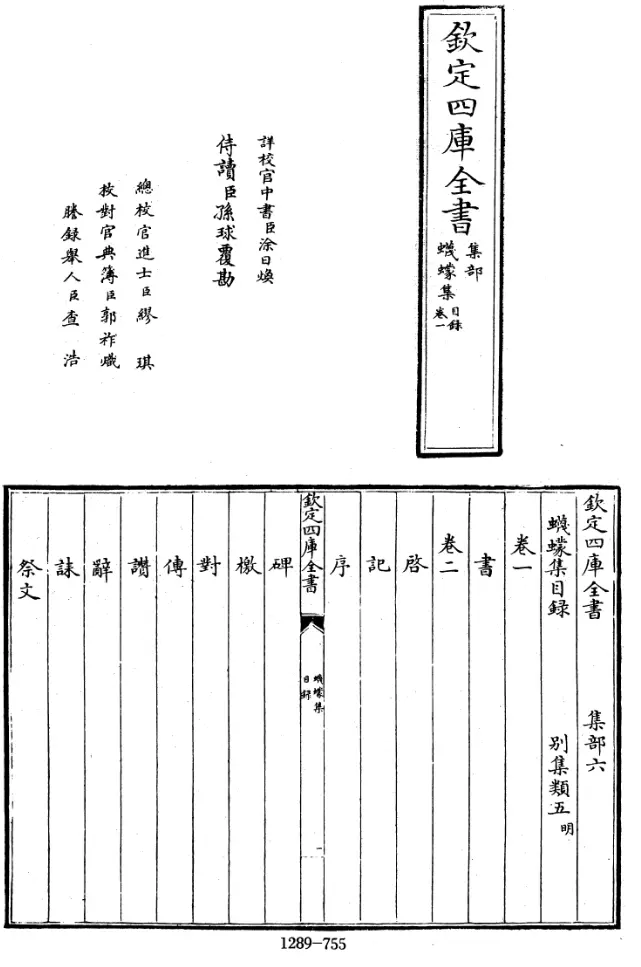 欽定四庫全書
集部
蠛蠓集
目錄
卷一
詳校官中書臣涂日煥
侍讀臣孫球覆勘
總校官進士臣繆琪
校對官典簿臣郭祚熾
謄錄舉人臣查浩
欽定四庫全書 集部六
蠛蠓集目録 别集類五明
卷一
書
卷二
啓
記
序
欽定四庫全書
蠛蠓集
目録
一
碑
檄
對
傳
讚
辭
誄
祭文
1289-755